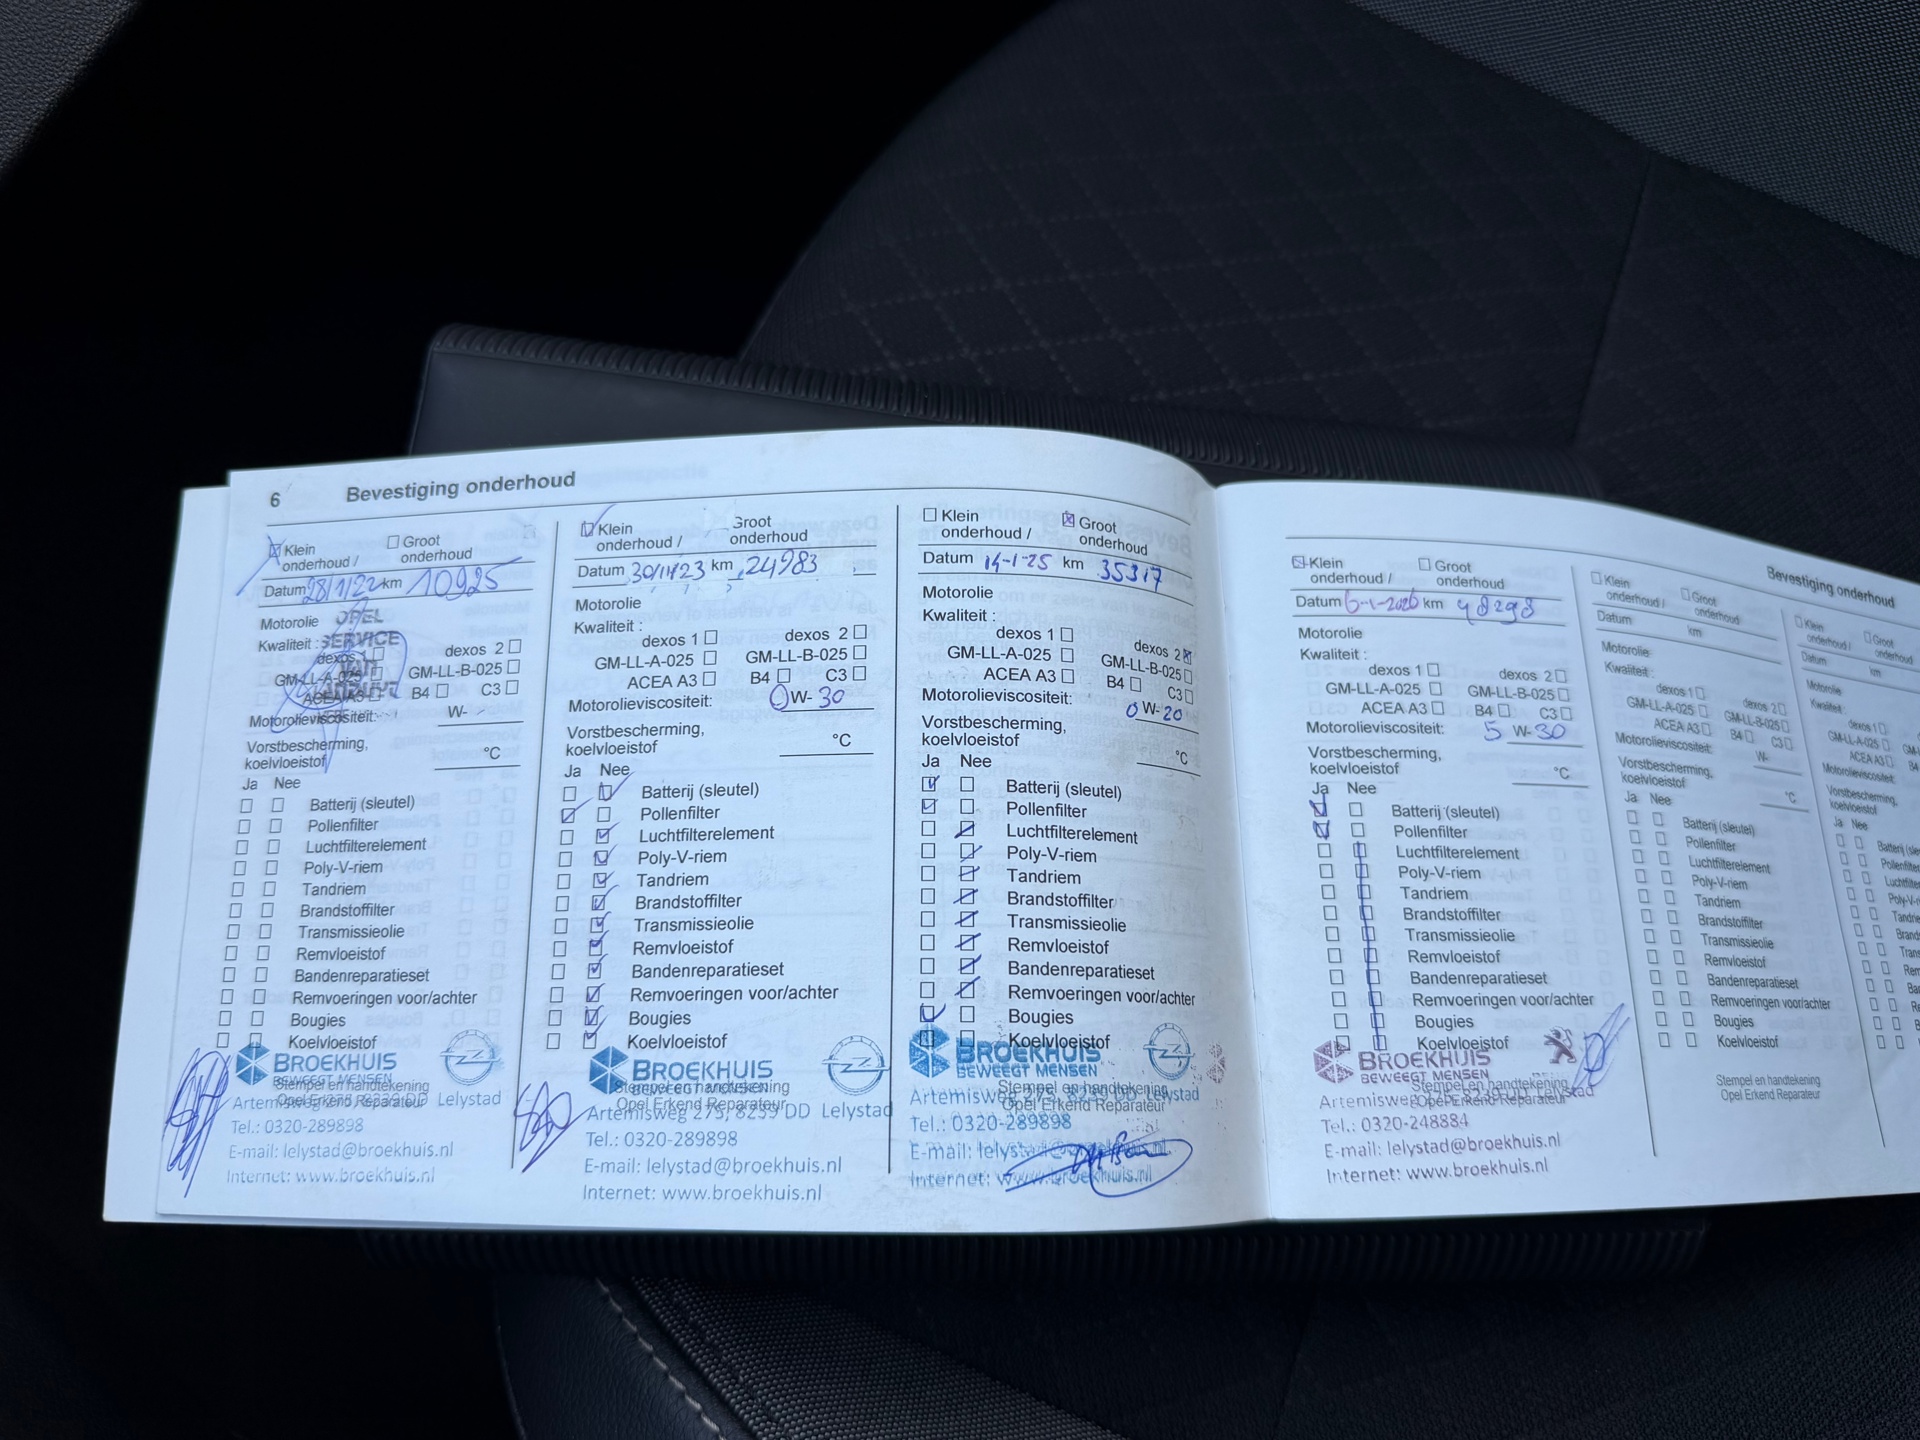 6 Bevestiging onderhoud
Klein onderhoud / Groot onderhoud
Datum 28/1/22 km 10925
Motorolie
OPEL
SERVICE
VAN
Kwaliteit :
dexos 1 dexos 2
GM-LL-A-025 GM-LL-B-025
ACEA A3 B4 C3
Motorolieviscositeit: W-
Vorstbescherming,
koelvloeistof °C
Ja Nee
Batterij (sleutel)
Pollenfilter
Luchtfilterelement
Poly-V-riem
Tandriem
Brandstoffilter
Transmissieolie
Remvloeistof
Bandenreparatieset
Remvoeringen voor/achter
Bougies
Koelvloeistof
BROEKHUIS
BEWEEGT MENSEN
Stempel en handtekening
Opel Erkend Reparateur
Artemisweg 275, 8239 DD Lelystad
Tel.: 0320-289898
E-mail: lelystad@broekhuis.nl
Internet: www.broekhuis.nl
Klein onderhoud / Groot onderhoud
Datum 30/11/23 km 24983
Motorolie
Kwaliteit :
dexos 1 dexos 2
GM-LL-A-025 GM-LL-B-025
ACEA A3 B4 C3
Motorolieviscositeit: 0 W- 30
Vorstbescherming,
koelvloeistof °C
Ja Nee
Batterij (sleutel)
Pollenfilter
Luchtfilterelement
Poly-V-riem
Tandriem
Brandstoffilter
Transmissieolie
Remvloeistof
Bandenreparatieset
Remvoeringen voor/achter
Bougies
Koelvloeistof
BROEKHUIS
BEWEEGT MENSEN
Stempel en handtekening
Opel Erkend Reparateur
Artemisweg 275, 8239 DD Lelystad
Tel.: 0320-289898
E-mail: lelystad@broekhuis.nl
Internet: www.broekhuis.nl
Klein onderhoud / Groot onderhoud
Datum 14-1-25 km 35317
Motorolie
Kwaliteit :
dexos 1 dexos 2
GM-LL-A-025 GM-LL-B-025
ACEA A3 B4 C3
Motorolieviscositeit: 0 W- 20
Vorstbescherming,
koelvloeistof °C
Ja Nee
Batterij (sleutel)
Pollenfilter
Luchtfilterelement
Poly-V-riem
Tandriem
Brandstoffilter
Transmissieolie
Remvloeistof
Bandenreparatieset
Remvoeringen voor/achter
Bougies
Koelvloeistof
BROEKHUIS
BEWEEGT MENSEN
Stempel en handtekening
Opel Erkend Reparateur
Artemisweg 275, 8239 DD Lelystad
Tel.: 0320-289898
E-mail: lelystad@broekhuis.nl
Internet: www.broekhuis.nl
Bevestiging onderhoud
Klein onderhoud / Groot onderhoud
Datum 6-1-2026 km 48298
Motorolie
Kwaliteit :
dexos 1 dexos 2
GM-LL-A-025 GM-LL-B-025
ACEA A3 B4 C3
Motorolieviscositeit: 5 W- 30
Vorstbescherming,
koelvloeistof °C
Ja Nee
Batterij (sleutel)
Pollenfilter
Luchtfilterelement
Poly-V-riem
Tandriem
Brandstoffilter
Transmissieolie
Remvloeistof
Bandenreparatieset
Remvoeringen voor/achter
Bougies
Koelvloeistof
BROEKHUIS
BEWEEGT MENSEN
Stempel en handtekening
Opel Erkend Reparateur
Artemisweg 275, 8239 DD Lelystad
Tel.: 0320-248884
E-mail: lelystad@broekhuis.nl
Internet: www.broekhuis.nl
Klein onderhoud / Groot onderhoud
Datum km
Motorolie
Kwaliteit :
dexos 1 dexos 2
GM-LL-A-025 GM-LL-B-025
ACEA A3 B4 C3
Motorolieviscositeit: W-
Vorstbescherming,
koelvloeistof °C
Ja Nee
Batterij (sleutel)
Pollenfilter
Luchtfilterelement
Poly-V-riem
Tandriem
Brandstoffilter
Transmissieolie
Remvloeistof
Bandenreparatieset
Remvoeringen voor/achter
Bougies
Koelvloeistof
Stempel en handtekening
Opel Erkend Reparateur
Klein onderhoud / Groot onderhoud
Datum km
Motorolie
Kwaliteit :
dexos 1
GM-LL-A-025
ACEA A3 B4
Motorolieviscositeit:
Vorstbescherming,
koelvloeistof
Ja Nee